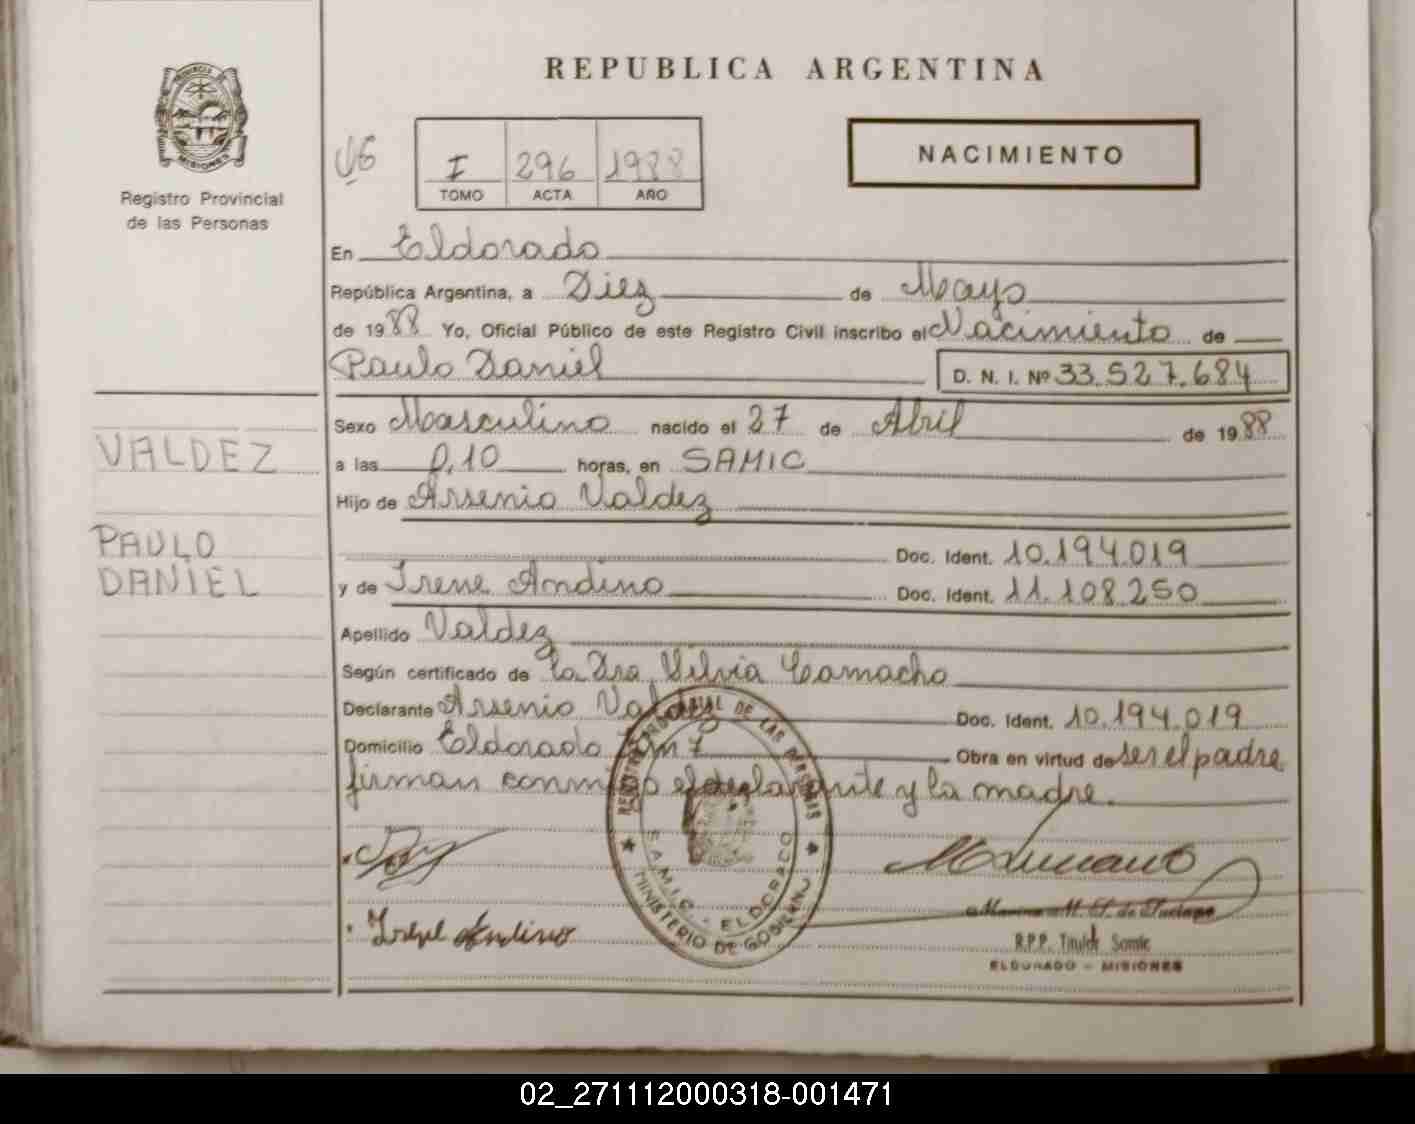 REPUBLICA ARGENTINA
PROVINCIA DE
MISIONES
Registro Provincial
de las Personas
V6
I 296 1988
TOMO ACTA AÑO
NACIMIENTO
En Eldorado
República Argentina, a Diez de Mayo
de 1988 Yo, Oficial Público de este Registro Civil inscribo el Nacimiento de
Paulo Daniel D. N. I. Nº 33.527.684
Sexo Masculino nacido el 27 de Abril de 1988
VALDEZ
a las 0,10 horas, en SAMIC
Hijo de Arsenio Valdez
PAULO
DANIEL
Doc. Ident. 10.194.019
y de Irene Andino Doc. Ident. 11.108.250
Apellido Valdez
Según certificado de La Dra Silvia Camacho
Declarante Arsenio Valdez Doc. Ident. 10.194.019
Domicilio Eldorado Km 7 Obra en virtud de ser el padre
firman conmigo el declarante y la madre.
REGISTRO PROVINCIAL DE LAS PERSONAS
S.A.M.I.C. - ELDORADO
MINISTERIO DE GOBIERNO
Irene Andino
R.P.P. Titular Samic
ELDORADO - MISIONES
02_271112000318-001471